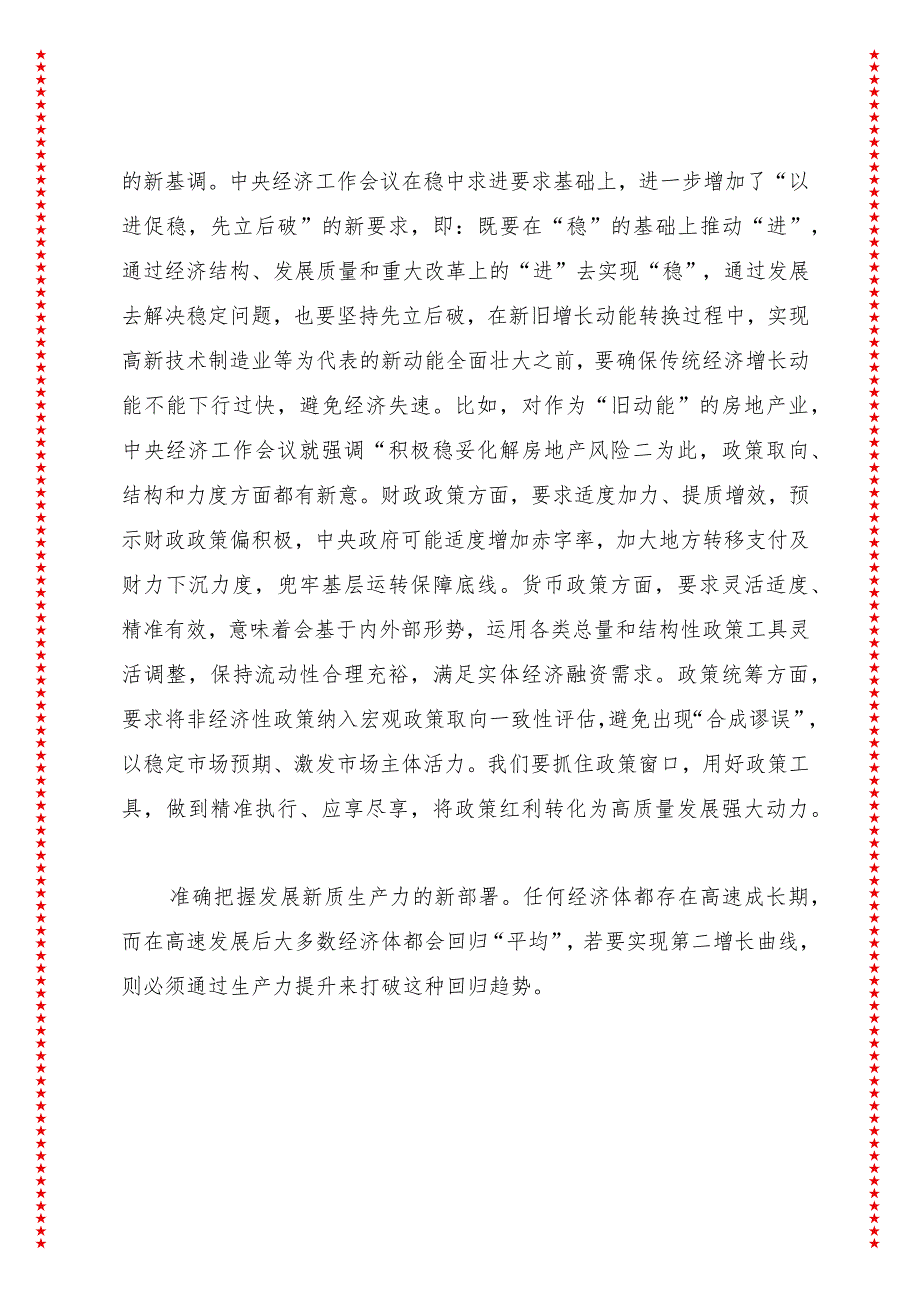 的新基调。中央经济工作会议在稳中求进要求基础上，进一步增加了“以
进促稳，先立后破”的新要求，即：既要在“稳”的基础上推动“进”，
通过经济结构、发展质量和重大改革上的“进”去实现“稳”，通过发展
去解决稳定问题，也要坚持先立后破，在新旧增长动能转换过程中，实现
高新技术制造业等为代表的新动能全面壮大之前，要确保传统经济增长动
能不能下行过快，避免经济失速。比如，对作为“旧动能”的房地产业，
中央经济工作会议就强调“积极稳妥化解房地产风险二为此，政策取向、
结构和力度方面都有新意。财政政策方面，要求适度加力、提质增效，预
示财政政策偏积极，中央政府可能适度增加赤字率，加大地方转移支付及
财力下沉力度，兜牢基层运转保障底线。货币政策方面，要求灵活适度、
精准有效，意味着会基于内外部形势，运用各类总量和结构性政策工具灵
活调整，保持流动性合理充裕，满足实体经济融资需求。政策统筹方面，
要求将非经济性政策纳入宏观政策取向一致性评估，避免出现“合成谬误”，
以稳定市场预期、激发市场主体活力。我们要抓住政策窗口，用好政策工
具，做到精准执行、应享尽享，将政策红利转化为高质量发展强大动力。
准确把握发展新质生产力的新部署。任何经济体都存在高速成长期，
而在高速发展后大多数经济体都会回归“平均”，若要实现第二增长曲线，
则必须通过生产力提升来打破这种回归趋势。